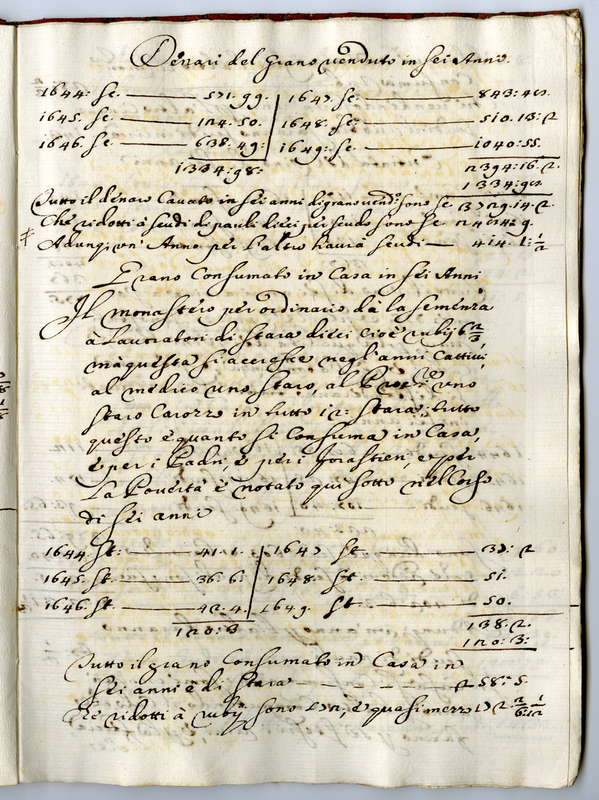 Denari del grano venduto in sei Anni.
1644: sc. 571.99: 1647. sc. 843:40.
1645. sc. 124.50. 1648. sc. 510.13:2
1646. sc. 638.49: 1649: sc. 1040:55.
1334:98: 2394:16.2.
1334:98
Tutto il denaro Cavato in sei anni di grano vend.º sono sc 3729.14.2
Che ridotti à scudi di pauli dieci per scudo sono sc
Adunq; un' Anno per l'altro havrà scudi 414.1:½
Grano Consumato in Casa in sei Anni
Il monastero per ordinario dà la semenza
à Lavoratori di stara dieci cioè rubij 6 2/3,
mà questa si accresce negl'anni Cattivi,
al medico uno staro, al uno
staro in tutto 12: stara; tutto
questo è quanto si Consuma in Casa,
è per i Padri, è per i forastieri, e per
La Povertà è notato qui sotto nel
di sei anni
1644. st: 41.1. 1647 st. 37: 2
1645. st. 36.6: 1648. st. 51.
1646. st. 42.4. 1649. st. 50.
120:3 138.2.
120:3:
Tutto il grano Consumato in Casa in
sei anni è di stara 258:5.
Che ridotti à rubij sono 172, è quasi mezzo